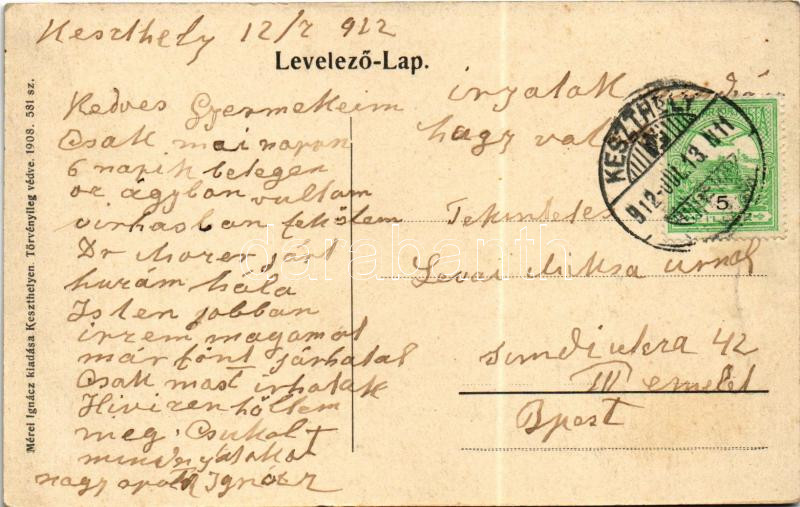 Keszthely 12/7 912
Levelező-Lap.
Kedves Gyermekeim
Csak mai napon
6 napik betegen
oz ágyban vultam
virhasban fekötem
Dr Morer járt
hurám hála
Isten jobban
irzem magamot
már fönt járhatal
Csak mast irhatak
Hivizen höltem
meg. Csukolt
mindnyátokat
nagy apátk Ignácz
irjatok
hagy vat
Tekintetes
Levai Miksa urnak
Sundiutza 42
III emelet
Bpest
KESZTHELY
912-JUL.13.N11
5
Mérei Ignácz kiadása Keszthelyen. Törvényileg védve. 1908. 581 sz.
darabanth.com